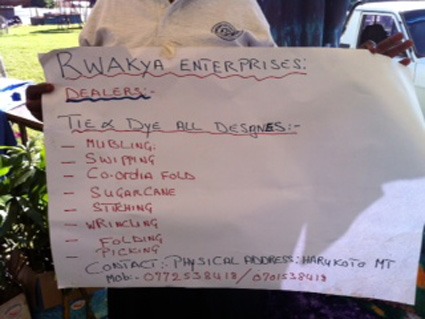 BWAKYA ENTERPRISES:
DEALERS:-
TIE & DYE ALL DESIGNES:-
- MUBLING.
- SWIPPING
- CO-ORDIA FOLD
- SUGARCANE
- STITCHING
- WRINCLING
- FOLDING
- PICKING
CONTACT:- PHYSICAL ADDRESS: HARUKOTO MT
MOB:- 0772538418/0701538418